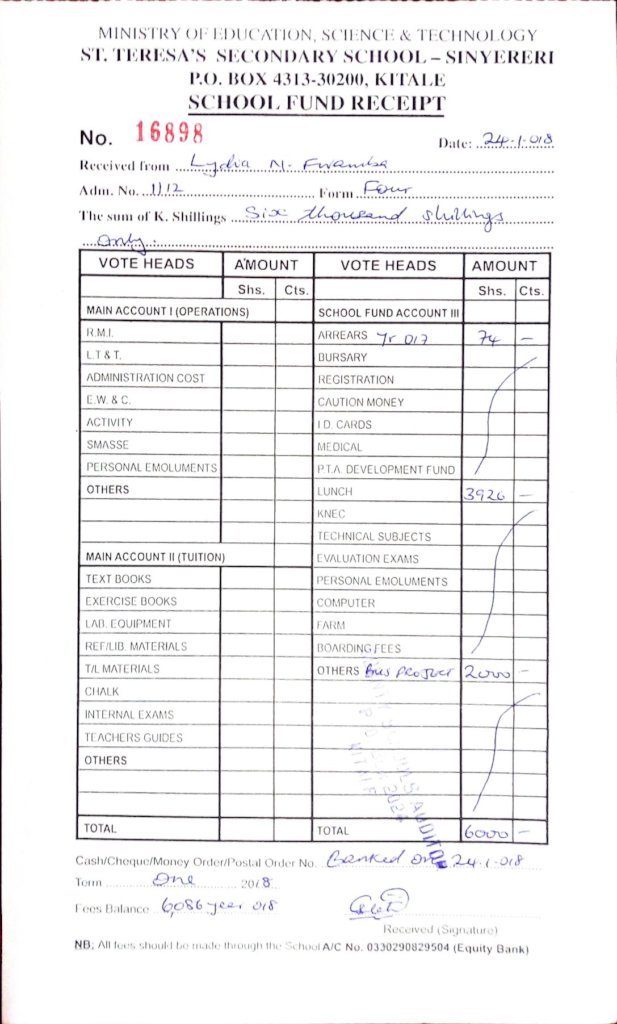 MINISTRY OF EDUCATION, SCIENCE & TECHNOLOGY
ST. TERESA'S SECONDARY SCHOOL – SINYERERI
P.O. BOX 4313-30200, KITALE
SCHOOL FUND RECEIPT
No. 16898
Date: 24-1-018
Received from Lydia N. Fwamba
Adm. No. 1112 Form Four
The sum of K. Shillings Six thousand shillings
only
VOTE HEADS AMOUNT VOTE HEADS AMOUNT
Shs. Cts. Shs. Cts.
MAIN ACCOUNT I (OPERATIONS) SCHOOL FUND ACCOUNT III
R.M.I. ARREARS Yr 017 74 –
L.T & T. BURSARY
ADMINISTRATION COST REGISTRATION
E.W. & C. CAUTION MONEY
ACTIVITY I.D. CARDS
SMASSE MEDICAL
PERSONAL EMOLUMENTS P.T.A. DEVELOPMENT FUND
OTHERS LUNCH 3926 –
KNEC
TECHNICAL SUBJECTS
MAIN ACCOUNT II (TUITION) EVALUATION EXAMS
TEXT BOOKS PERSONAL EMOLUMENTS
EXERCISE BOOKS COMPUTER
LAB. EQUIPMENT FARM
REF/LIB. MATERIALS BOARDING FEES
T/L MATERIALS OTHERS Bus project 2000 –
CHALK
INTERNAL EXAMS
TEACHERS GUIDES
OTHERS
TOTAL TOTAL 6000 –
Cash/Cheque/Money Order/Postal Order No. Banked on 24-1-018
Term One 2018
Fees Balance 6,086 year 018
Received (Signature)
NB; All fees should be made through the School A/C No. 0330290829504 (Equity Bank)